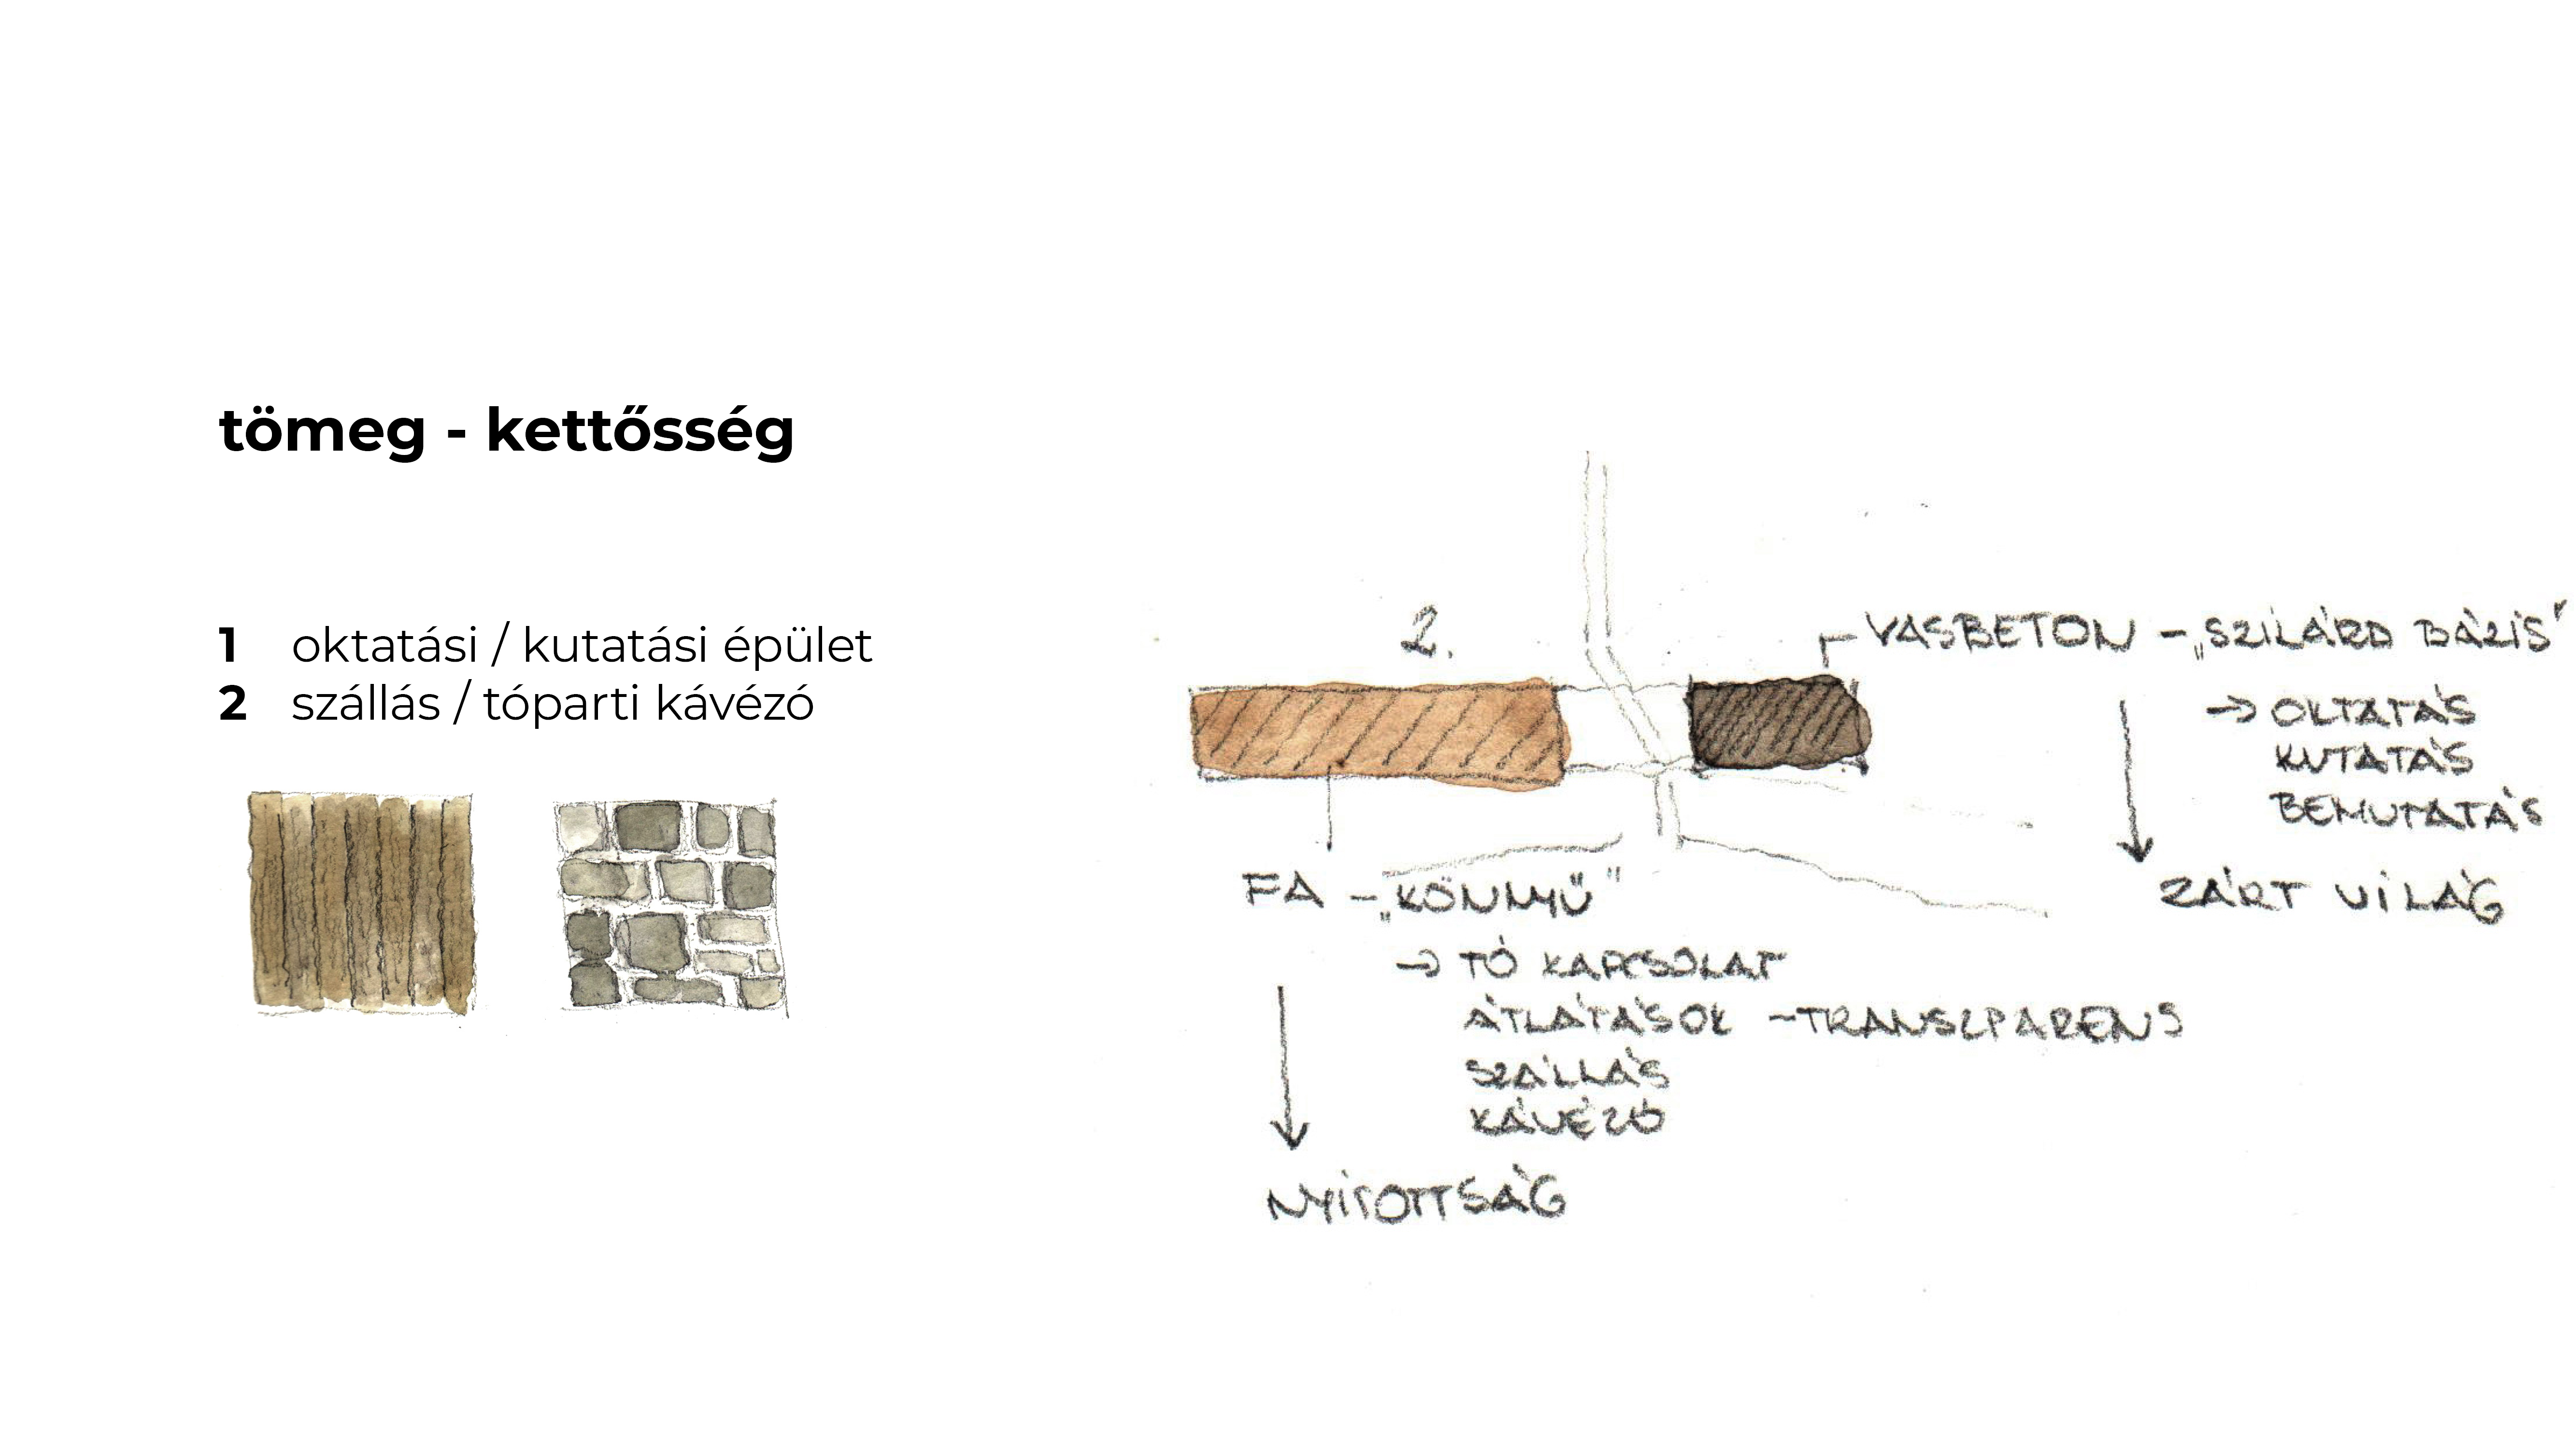 tömeg - kettősség
1 oktatási / kutatási épület
2 szállás / tóparti kávézó
2.
VASBETON - „SZILÁRD BÁZIS"
→ OKTATÁS
KUTATÁS
BEMUTATÁS
ZÁRT VILÁG
FA - „KÖNNYŰ"
→ TÓ KAPCSOLAT
ÁTLÁTÁSOK - TRANSZPARENS
SZÁLLÁS
KÁVÉZÓ
NYITOTTSÁG